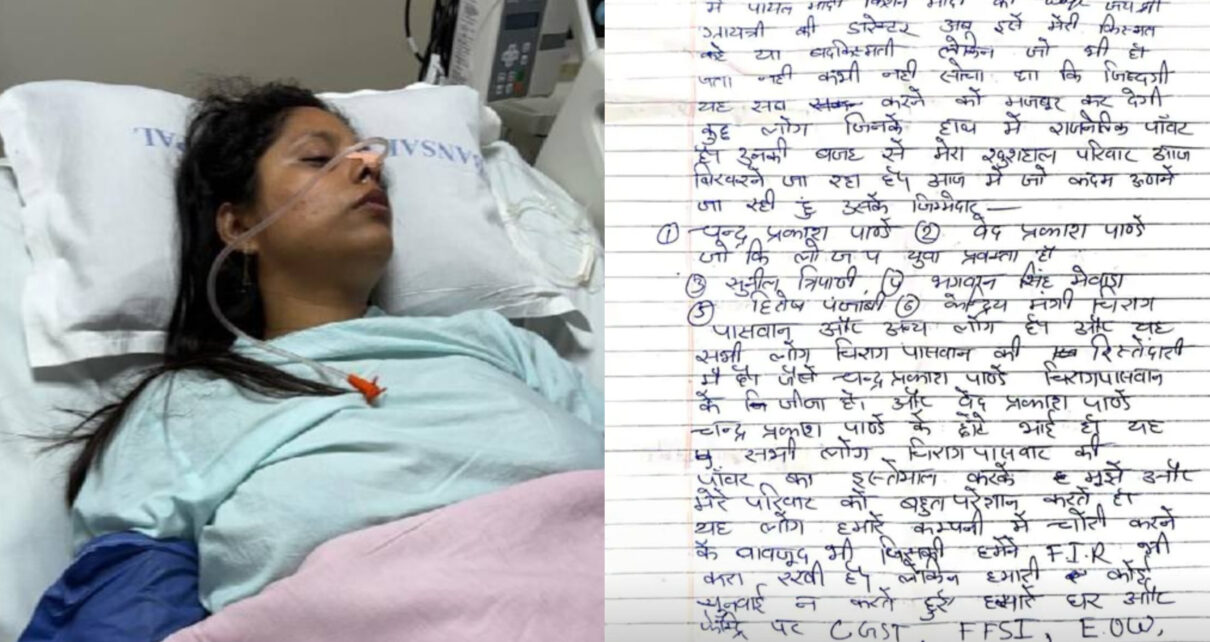 BANSAL HOSPITAL
में पायल मोदी किशन मोदी की जयश्री
गायत्री की डारेक्टर अब इसे मेरी किस्मत
कहे या बदकिस्मती लेकिन जो भी हो
पता नही कभी नही सोचा था कि जिन्दगी
यह सब करने को मजबूर कर देगी
कुछ लोग जिनके हाथ में राजनेतिक पॉवर
है इनकी बजह से मेरा खुशहाल परिवार आज
बिखरने जा रहा है आज में जो कदम उठाने
जा रही हूं उसके जिम्मेदार —
① चन्द्र प्रकाश पाण्डे ② वेद प्रकाश पाण्डे
जो कि लो ज प युवा प्रवक्ता है
③ सुनील त्रिपाठी ④ भगवान सिंह मेवाड़ा
⑤ हितेष पंजाबी ⑥ केन्द्रिय मंत्री चिराग
पासवान और अन्य लोग है। और यह
सभी लोग चिराग पासवान की रिस्तेदारी
में है। जैसे चन्द्र प्रकाश पाण्डे चिरागपासवान
के जीजा है। और वेद प्रकाश पाण्डे
चन्द्र प्रकाश पाण्डे के छोटे भाई है। यह
सभी लोग चिराग पासवान की
पॉवर का इस्तेमाल करके मुझे और
मेरे परिवार को बहुत परेशान करते है।
यह लोग हमारे कम्पनी में चोरी करने
के वावजूद भी जिसकी हमने F.I.R भी
करा रखी है लेकिन हमारी कोई
सुनवाई न करते हुए हमारे घर और
फेक्ट्रि पर CGST, FFSI, E.OW,